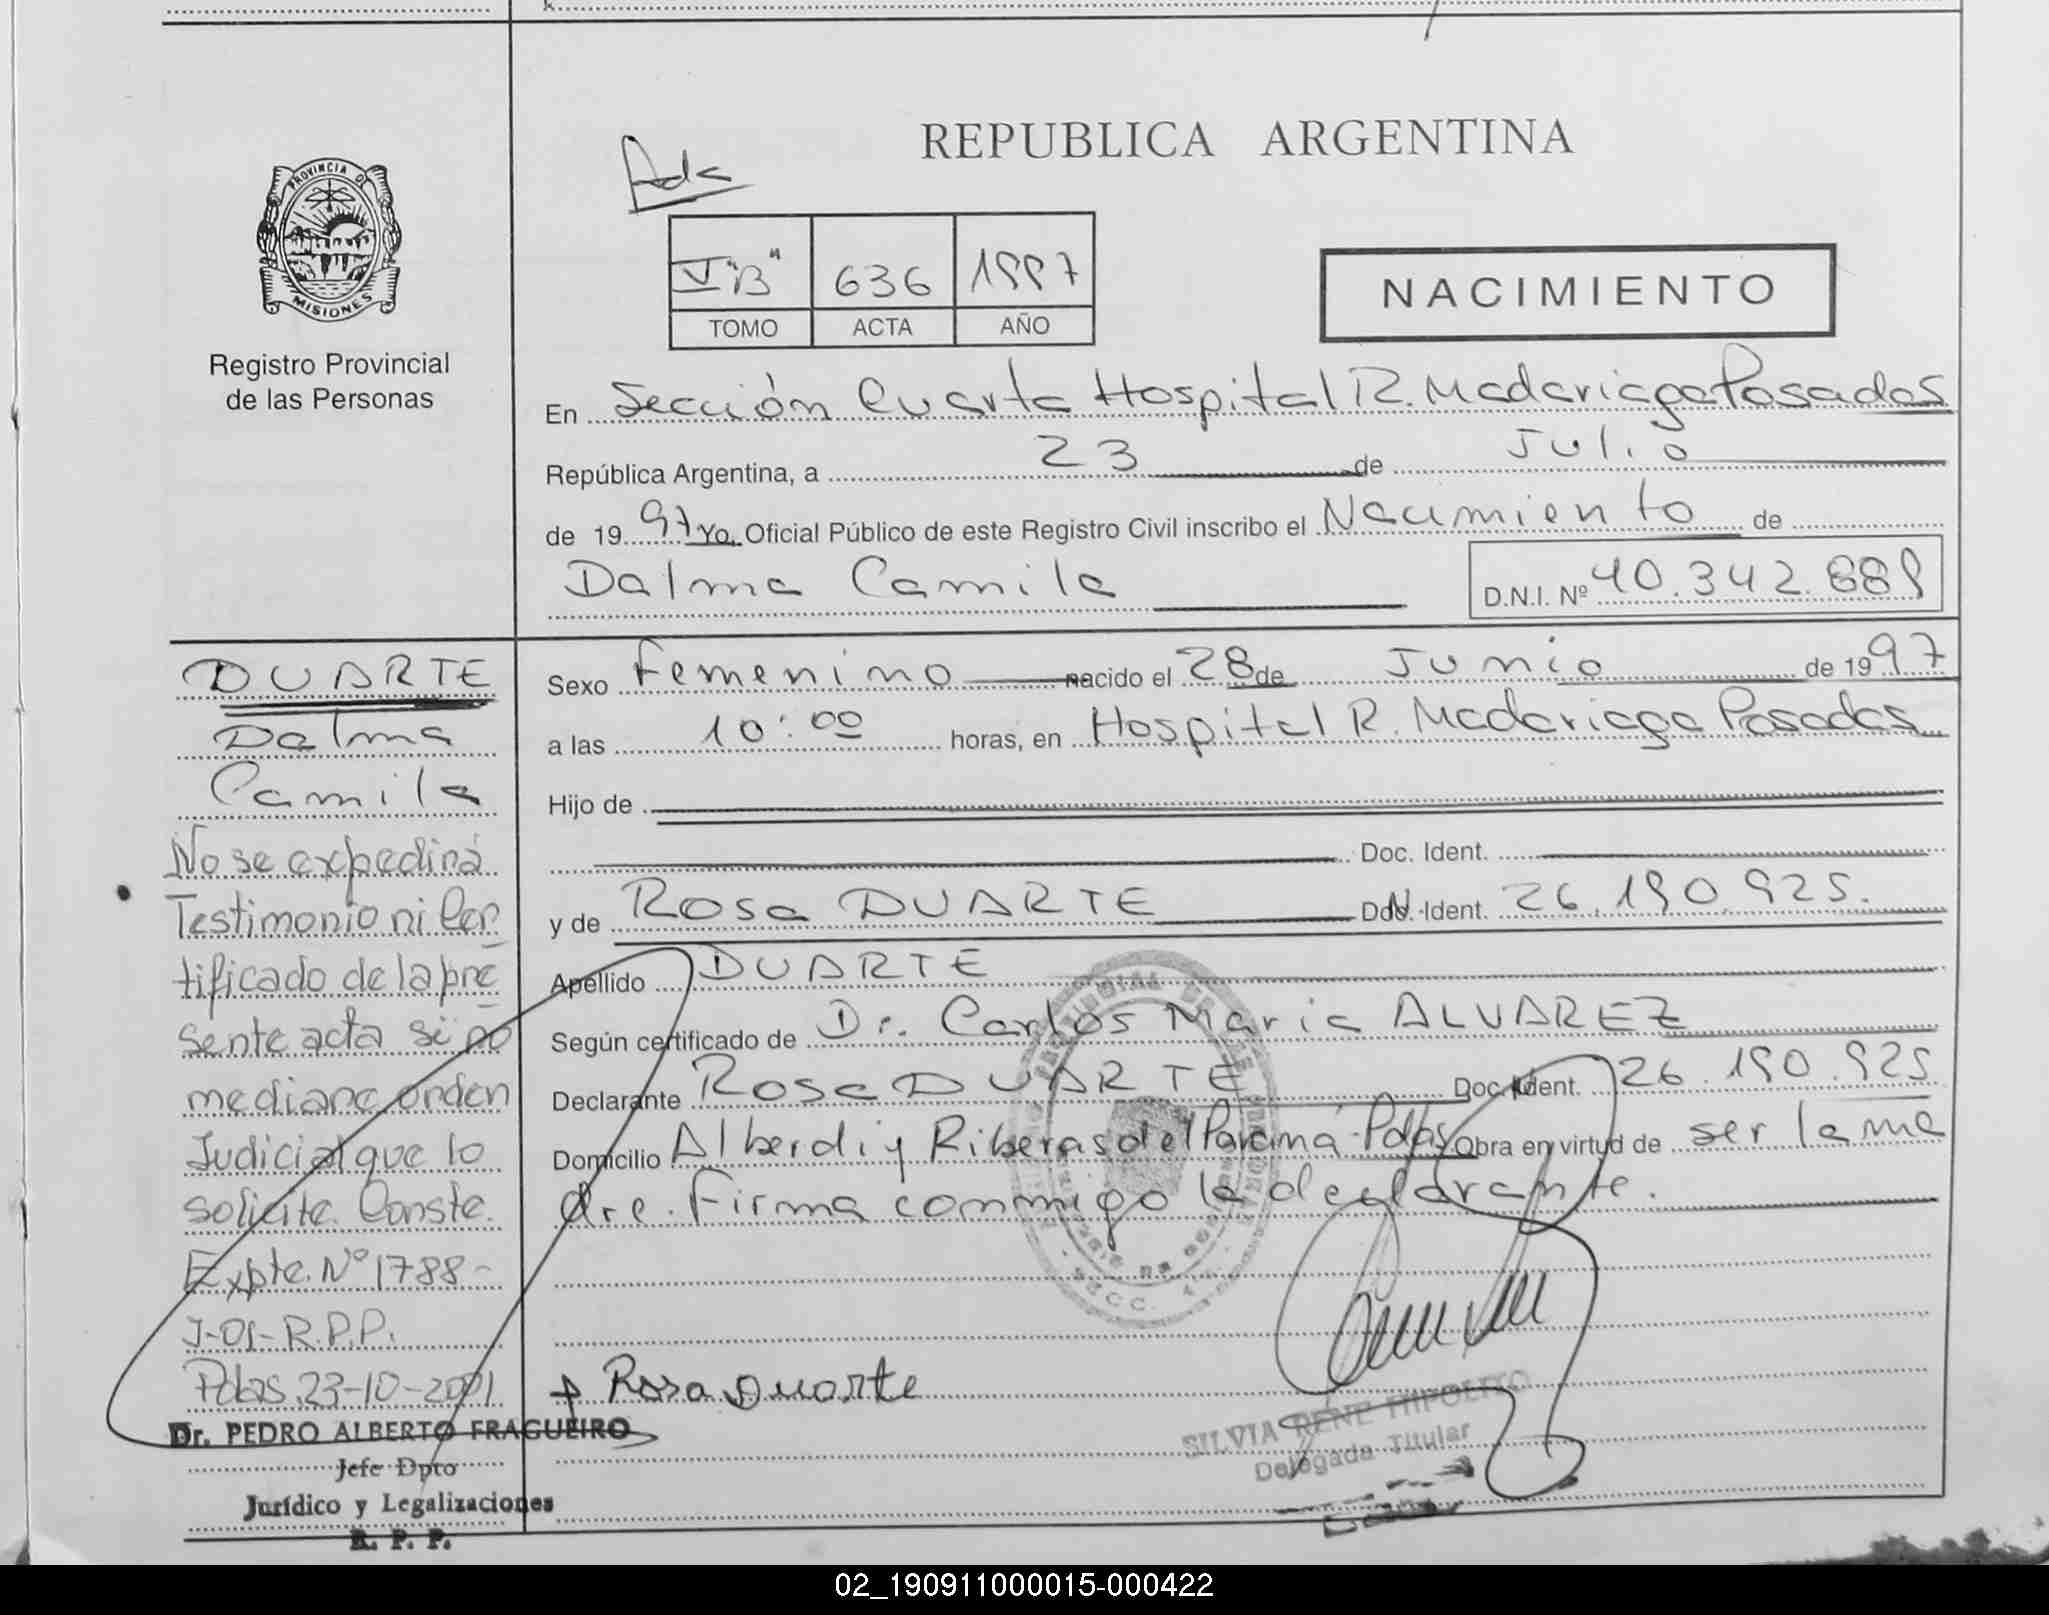 REPUBLICA ARGENTINA
Ada
V "B" 636 1997
TOMO ACTA AÑO
NACIMIENTO
PROVINCIA DE
MISIONES
Registro Provincial
de las Personas
En Sección Cuarta Hospital R. Madariaga Posadas
República Argentina, a 23 de Julio
de 1997 Yo, Oficial Público de este Registro Civil inscribo el Nacimiento de
Dalma Camila D.N.I. Nº 40.342.889
Sexo Femenino nacido el 28 de Junio de 1997
a las 10:00 horas, en Hospital R. Madariaga Posadas
Hijo de
Doc. Ident.
y de Rosa DUARTE Doc. Ident. 26.190.925.
Apellido DUARTE
Según certificado de Dr. Carlos Maria ALVAREZ
Declarante Rosa DUARTE Doc. Ident. 26.190.925
Domicilio Alberdi y Riberas del Paraná-Pdas Obra en virtud de ser la ma
dre. Firma conmigo la declarante.
Rosa Duarte
SILVIA RENE HIPOLITO
Delegada Titular
DUARTE
Dalma
Camila
No se expedirá
Testimonio ni Cer
tificado de la pre
sente acta si no
mediare orden
Judicial que lo
solicite. Conste.
Expte. Nº 1788-
J-01-R.P.P.
Pdas, 23-10-2001
Dr. PEDRO ALBERTO FRAGUEIRO
Jefe Dpto
Jurídico y Legalizaciones
R. P. P.
02_190911000015-000422